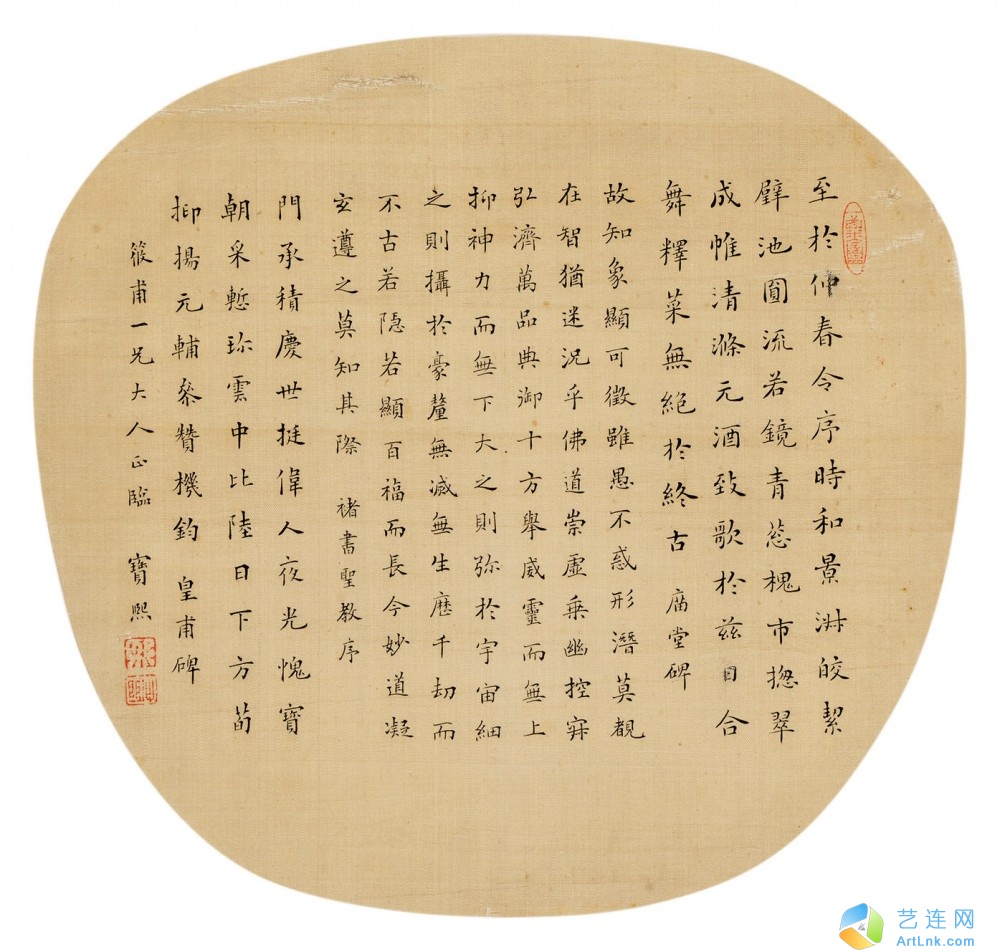 至於仲春令序時和景淑皎潔
璧池圓流若鏡青葱槐市揔翠
成帷清滌元酒致歌於兹日合
舞釋菜無絕於終古 庿堂碑
故知象顯可徵雖愚不惑形潛莫覩
在智猶迷況乎佛道崇虛乗幽控寂
弘濟萬品典御十方舉威靈而無上
抑神力而無下大之則弥於宇宙細
之則攝於豪釐無滅無生歷千劫而
不古若隐若顯百福而長今妙道凝
玄遵之莫知其際 褚書聖教序
門承積慶世挺偉人夜光愧寶
朝采慙珎雲中比陸日下方荀
抑揚元輔叅贊機鈞 皇甫碑
筱甫一兄大人正臨 寶熙
艺连网
ArtLnk.com